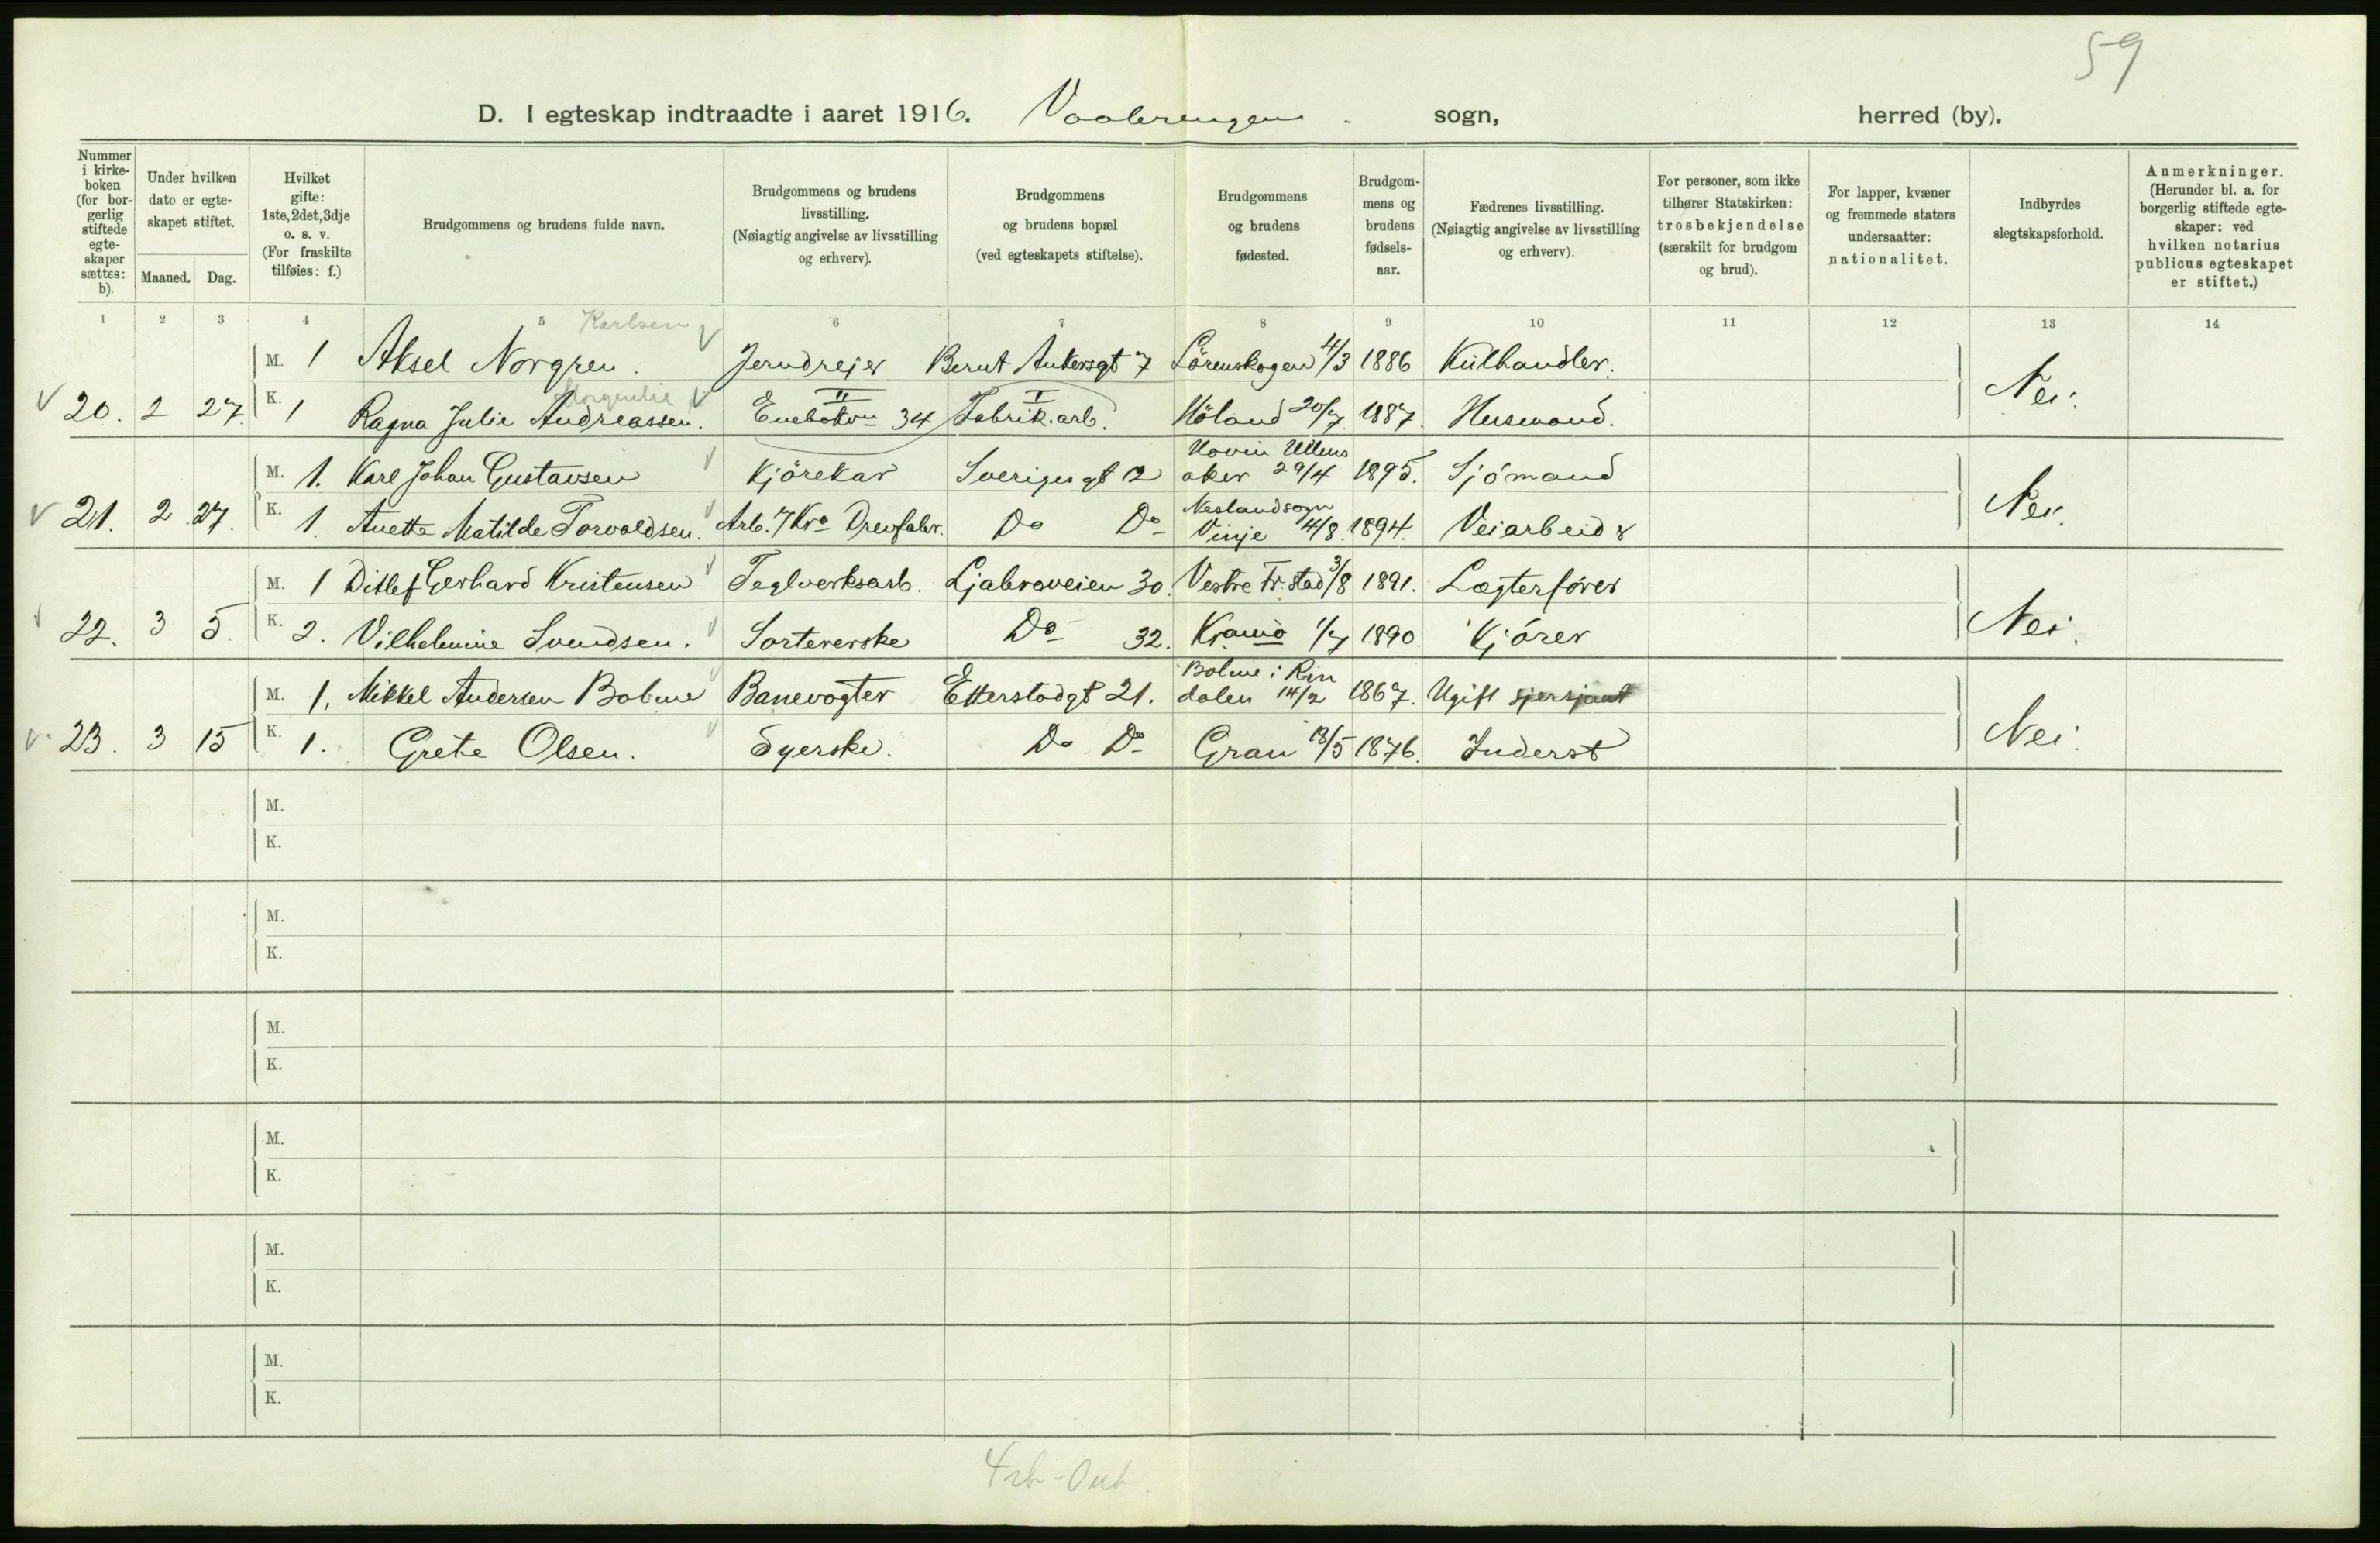 59
D. I egteskap indtraadte i aaret 1916. Vaalerengens sogn, herred (by).
Nummer i kirkeboken (for borgerlig stiftede egteskaper sættes: b).
Under hvilken dato er egteskapet stiftet.
Maaned. Dag.
Hvilket gifte: 1ste, 2det, 3dje o. s. v. (For fraskilte tilføies: f.)
Brudgommens og brudens fulde navn.
Brudgommens og brudens livsstilling. (Nøiagtig angivelse av livsstilling og erhverv).
Brudgommens og brudens bopæl (ved egteskapets stiftelse).
Brudgommens og brudens fødested.
Brudgommens og brudens fødselsaar.
Fædrenes livsstilling. (Nøiagtig angivelse av livsstilling og erhverv).
For personer, som ikke tilhører Statskirken: trosbekjendelse (særskilt for brudgom og brud).
For lapper, kvæner og fremmede staters undersaatter: nationalitet.
Indbyrdes slegtskapsforhold.
Anmerkninger. (Herunder bl. a. for borgerlig stiftede egteskaper: ved hvilken notarius publicus egteskapet er stiftet.)
1 2 3 4 5 6 7 8 9 10 11 12 13 14
Karlsen
M. 1 Aksel Norgren. Jerndrejer Bernt Ankersgt 7 Lörenskogen 4/3 1886 Kulhandler.
20. 2 27. K. 1 Ragna Julie Andreassen. II Enebakvn 34 I Fabrik.arb. Höland 20/7 1887. Husmand. Nei.
M. 1. Karl Johan Gustavsen Kjörekar Sverigesgt 12 Hovin Ullensaker 29/4 1895. Sjömand
21. 2 27. K. 1. Anette Matilde Torvaldsen. Arb. 7 Kra Drevfabr. Do Do Neslandsogn Vinje 4/8. 1894. Veiarbeid Nei.
M. 1 Ditlef Gerhard Kristensen Teglverksarb. Ljabroveien 30. Vestre Fr.stad 3/8 1891. Lægterfører
22. 3 5. K. 2. Vilhelmine Svendsen. Sorterske Do 32. Kra 1/7 1890. Kjörer Nei.
M. 1. Mikkel Andersen Bolme Banevogter Etterstadgt 21. Bolme i Rindalen 14/2 1867. Ugift sjersjant
23. 3 15 K. 1. Grete Olsen. Syerske. Do Do Gran 18/5 1876. Inderst Nei.
M.
K.
M.
K.
M.
K.
M.
K.
M.
K.
M.
K.